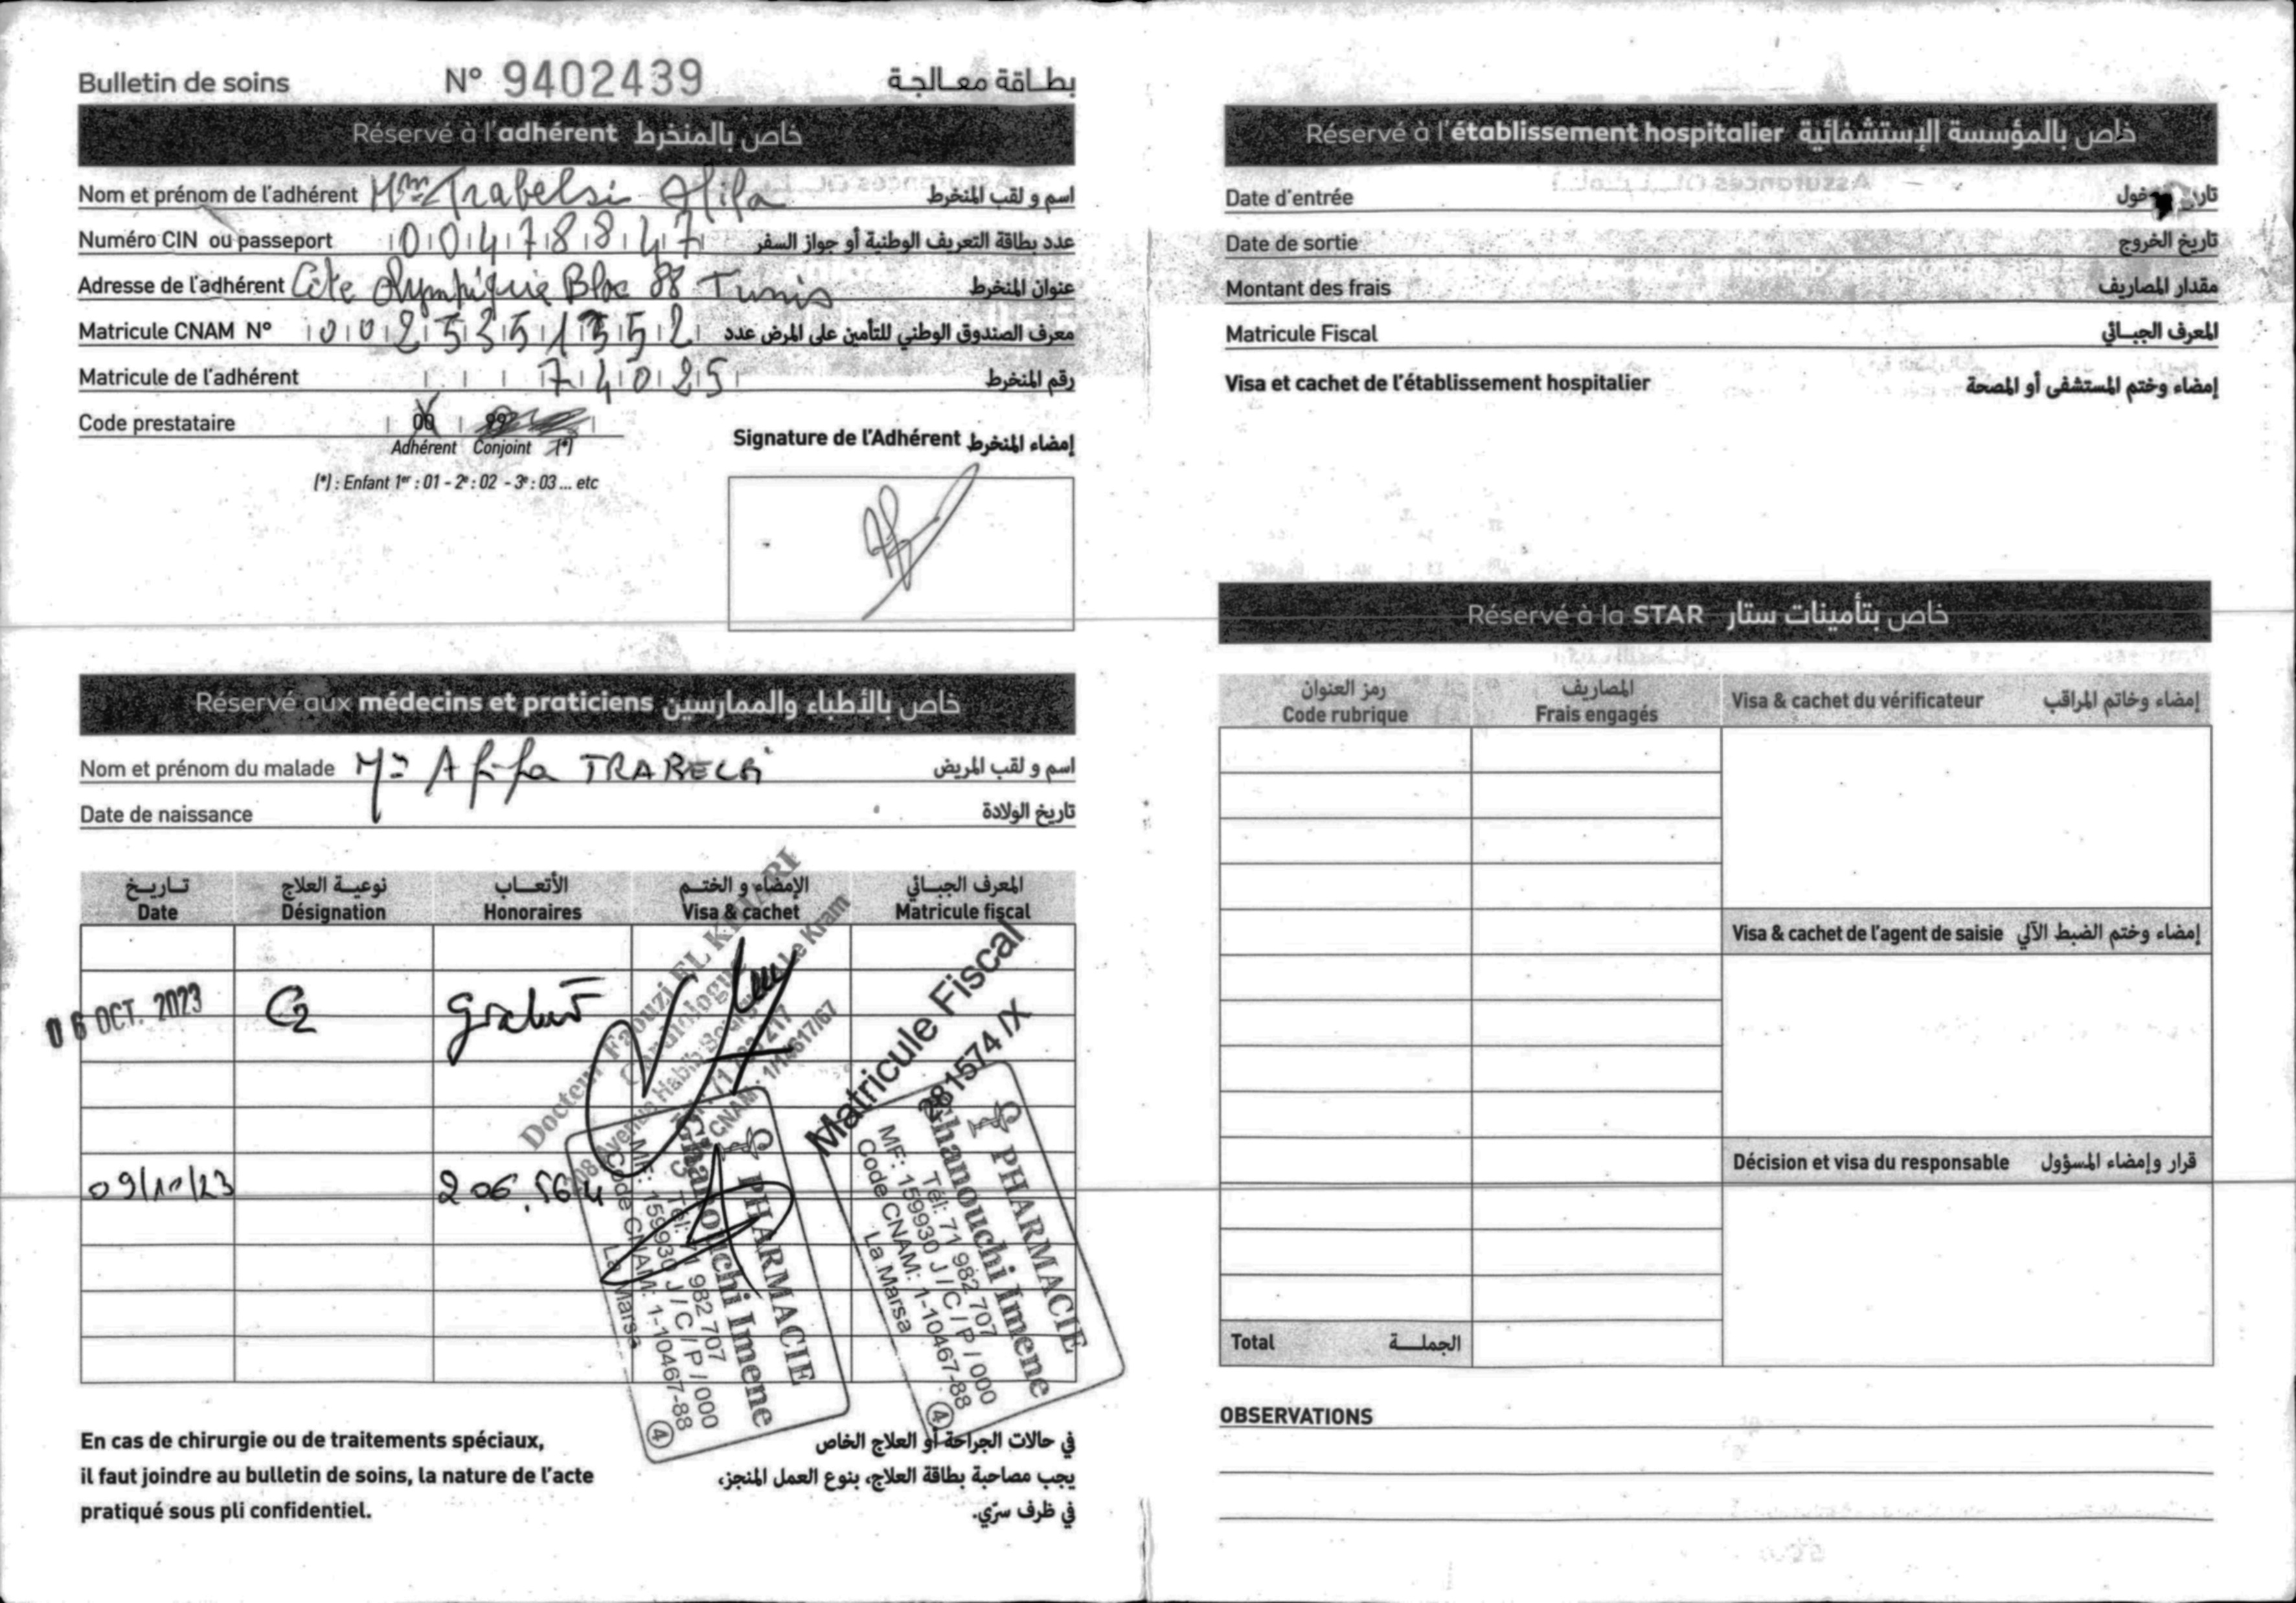 Bulletin de soins N° 9402439 بطاقة معالجة
Réservé à l'adhérent خاص بالمنخرط
Nom et prénom de l'adhérent Mme Trabelsi Afifa اسم و لقب المنخرط
Numéro CIN ou passeport 00478847 عدد بطاقة التعريف الوطنية أو جواز السفر
Adresse de l'adhérent Cite Olympique Bloc 88 Tunis عنوان المنخرط
Matricule CNAM N° 0025351352 معرف الصندوق الوطني للتأمين على المرض عدد
Matricule de l'adhérent 74025 رقم المنخرط
Code prestataire 00 99
Adhérent Conjoint (*)
(*) : Enfant 1er : 01 - 2e : 02 - 3e : 03 ... etc
Signature de l'Adhérent إمضاء المنخرط
Réservé aux médecins et praticiens خاص بالأطباء والممارسين
Nom et prénom du malade Me Afifa TRABELSI اسم و لقب المريض
Date de naissance تاريخ الولادة
تاريخ نوعية العلاج الأتعاب الإمضاء و الختم المعرف الجبائي
Date Désignation Honoraires Visa & cachet Matricule fiscal
06 OCT. 2023 C2 gratuit
Docteur Faouzi EL
Cardiologue
Avenue Habib Le Kram
Matricule Fiscal
281574/X
09/10/23 206.564
PHARMACIE
Ghanouchi Imene
Tél: 71 982 707
MF: 159930 J / C / P / 000
Code CNAM: 1-10467-88
La Marsa
4
PHARMACIE
Ghanouchi Imene
Tél: 71 982 707
MF: 159930 J / C / P / 000
Code CNAM: 1-10467-88
La Marsa
4
En cas de chirurgie ou de traitements spéciaux,
il faut joindre au bulletin de soins, la nature de l'acte
pratiqué sous pli confidentiel.
في حالات الجراحة أو العلاج الخاص
يجب مصاحبة بطاقة العلاج، بنوع العمل المنجز،
في ظرف سرّي.
Réservé à l'établissement hospitalier خاص بالمؤسسة الإستشفائية
Date d'entrée
Date de sortie تاريخ الخروج
Montant des frais مقدار المصاريف
Matricule Fiscal المعرف الجبائي
Visa et cachet de l'établissement hospitalier إمضاء وختم المستشفى أو المصحة
Réservé à la STAR خاص بتأمينات ستار
رمز العنوان المصاريف
Code rubrique Frais engagés Visa & cachet du vérificateur إمضاء وخاتم المراقب
Visa & cachet de l'agent de saisie إمضاء وختم الضبط الآلي
Décision et visa du responsable قرار وإمضاء المسؤول
Total الجملة
OBSERVATIONS